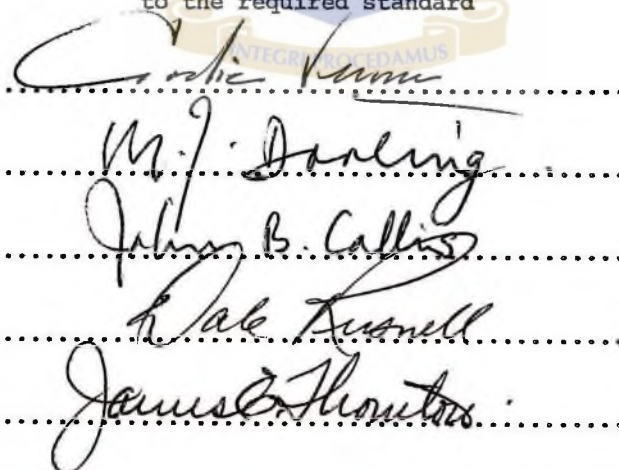 to the required standard
INTEGRI PROCEDAMUS
M. J. Darling
John B. Collins
Dale Rusnell
James E. Thornton